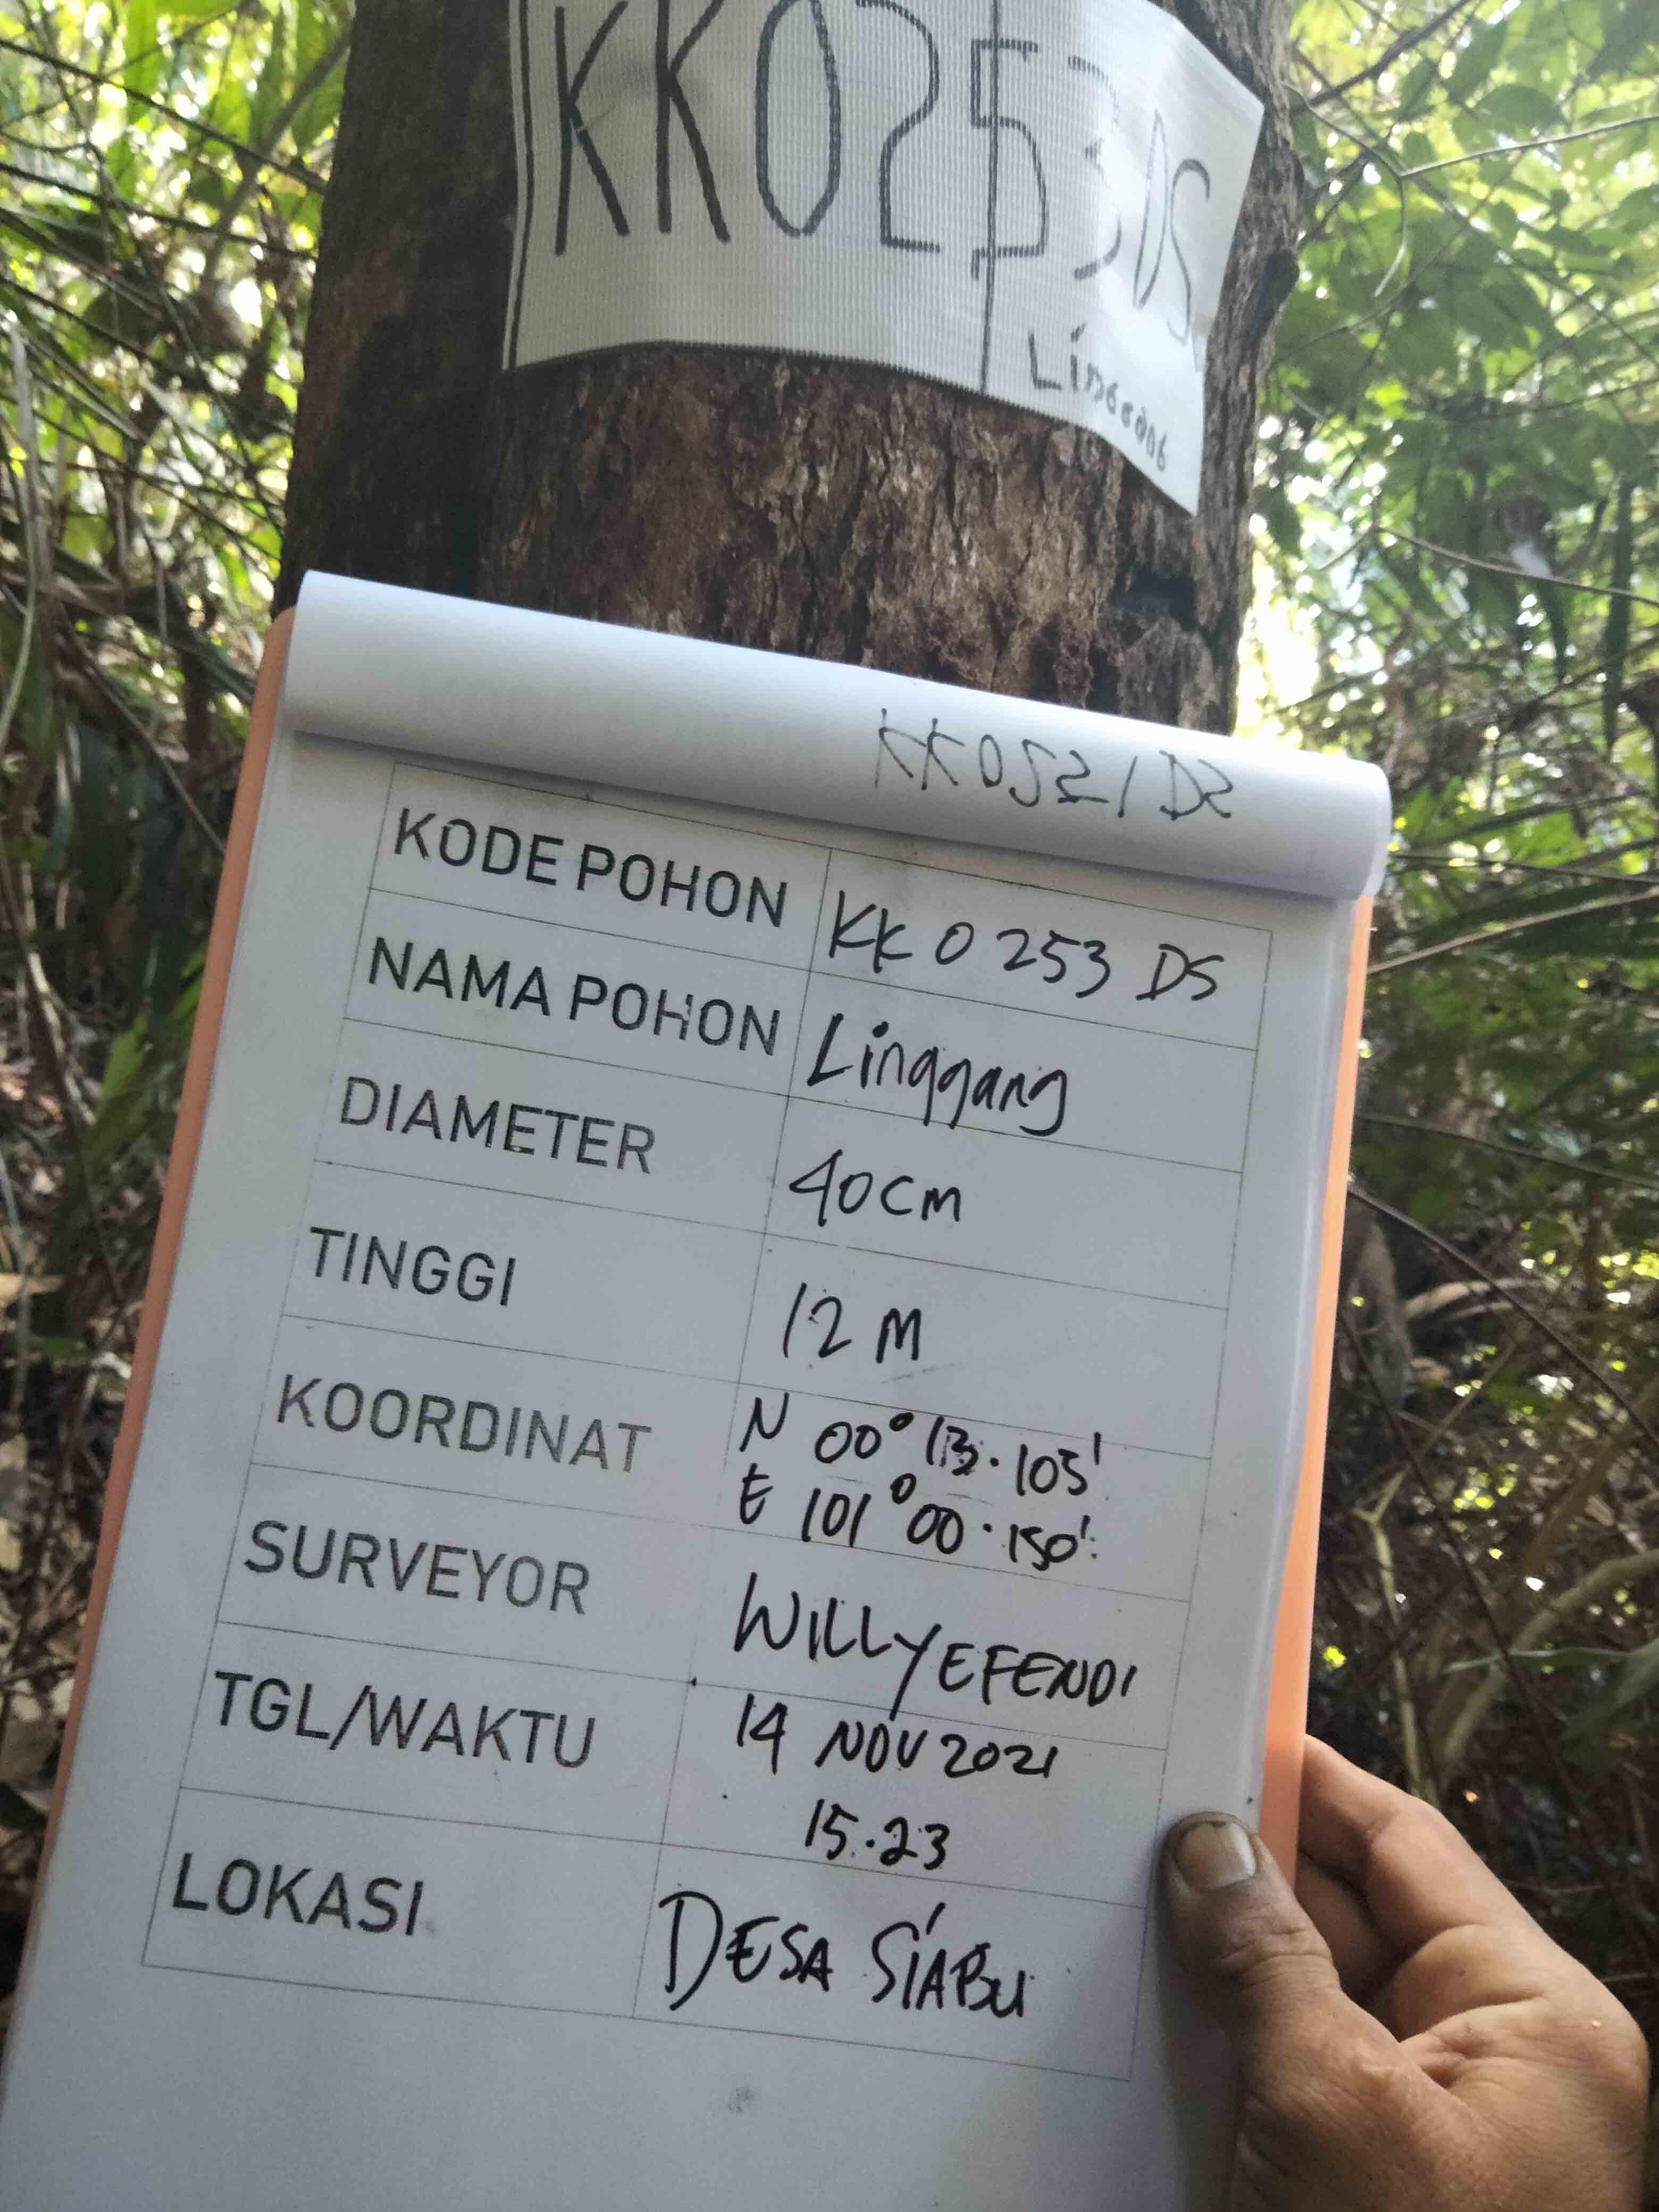 KK0253DS
Linggang
KODE POHON KK 0 253 DS
NAMA POHON Linggang
DIAMETER 40 cm
TINGGI 12 M
KOORDINAT N 00° 13.105'
E 101° 00.150'
SURVEYOR WILLY EFENDI
TGL/WAKTU 14 NOV 2021
15.23
LOKASI DESA SIABU